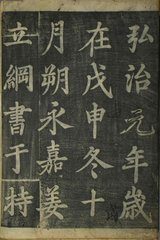 弘治元年歳
在戊申冬十
月朔永嘉姜
立綱書于特